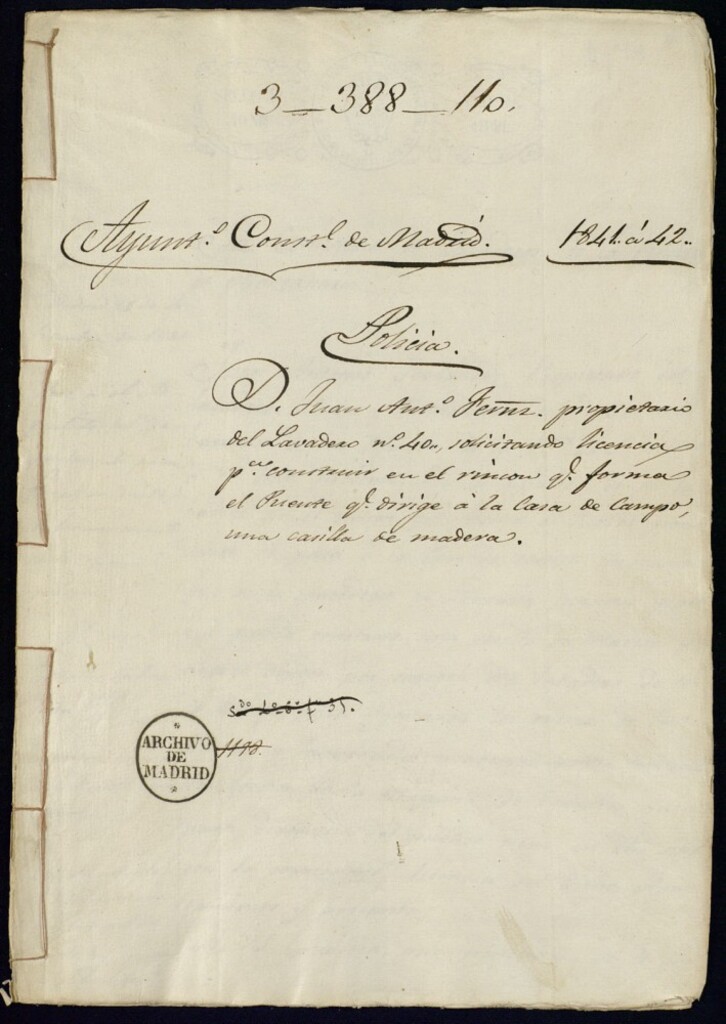 3_388_110.
Ayunt.º Const.l de Madrid. 1841. á 42..
Policia.
D. Juan Ant.º Fernz. propietario
del Lavadero nº. 40., solicitando licencia
p.ª construir en el rincon q.e forma
el Puente q.e dirige á la Casa de Campo,
una casilla de madera.
ARCHIVO
DE
MADRID
1198.